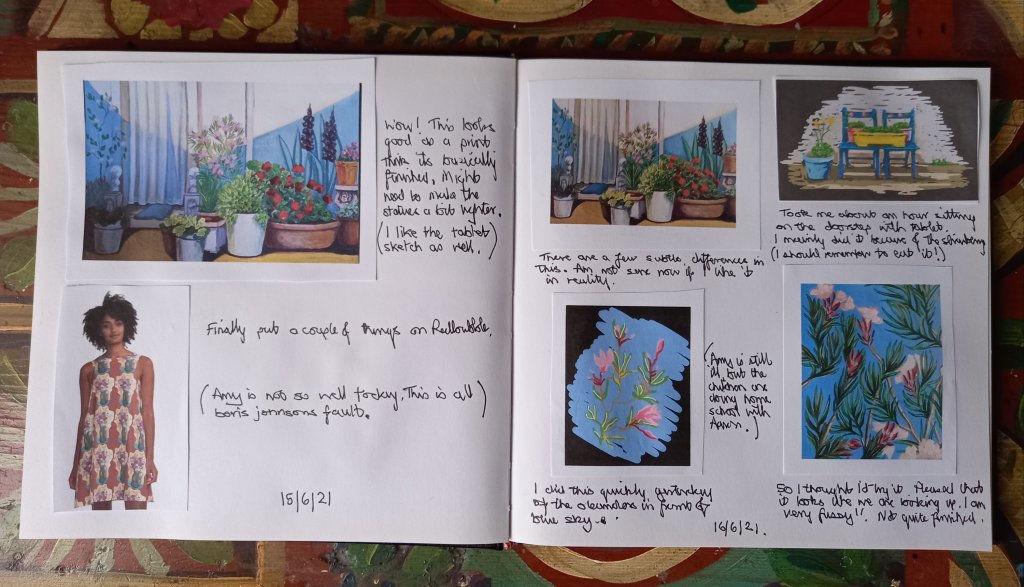 Wow! This looks
good as a print
think its basically
finished, Might
need to make the
statues a bit lighter.
(I like the tablet
sketch as well.)
Finally put a couple of things on Redbubble.
(Amy is not so well today. This is all
boris johnsons fault.)
15/6/21
There are a few subtle differences in
this. Am not sure now if I like it
in reality.
Took me about an hour sitting
on the doorstep with tablet.
I mainly did it because of the strawberry
(I should remember to eat it!)
(Amy is still
ill, but the
children are
doing home
school with
)
I did this quickly, yesterday
of the oleanders in front of
blue sky.
16/6/21.
So I thought I'd try it. Pleased that
it looks like we are looking up. I am
very fussy!!. Not quite finished.